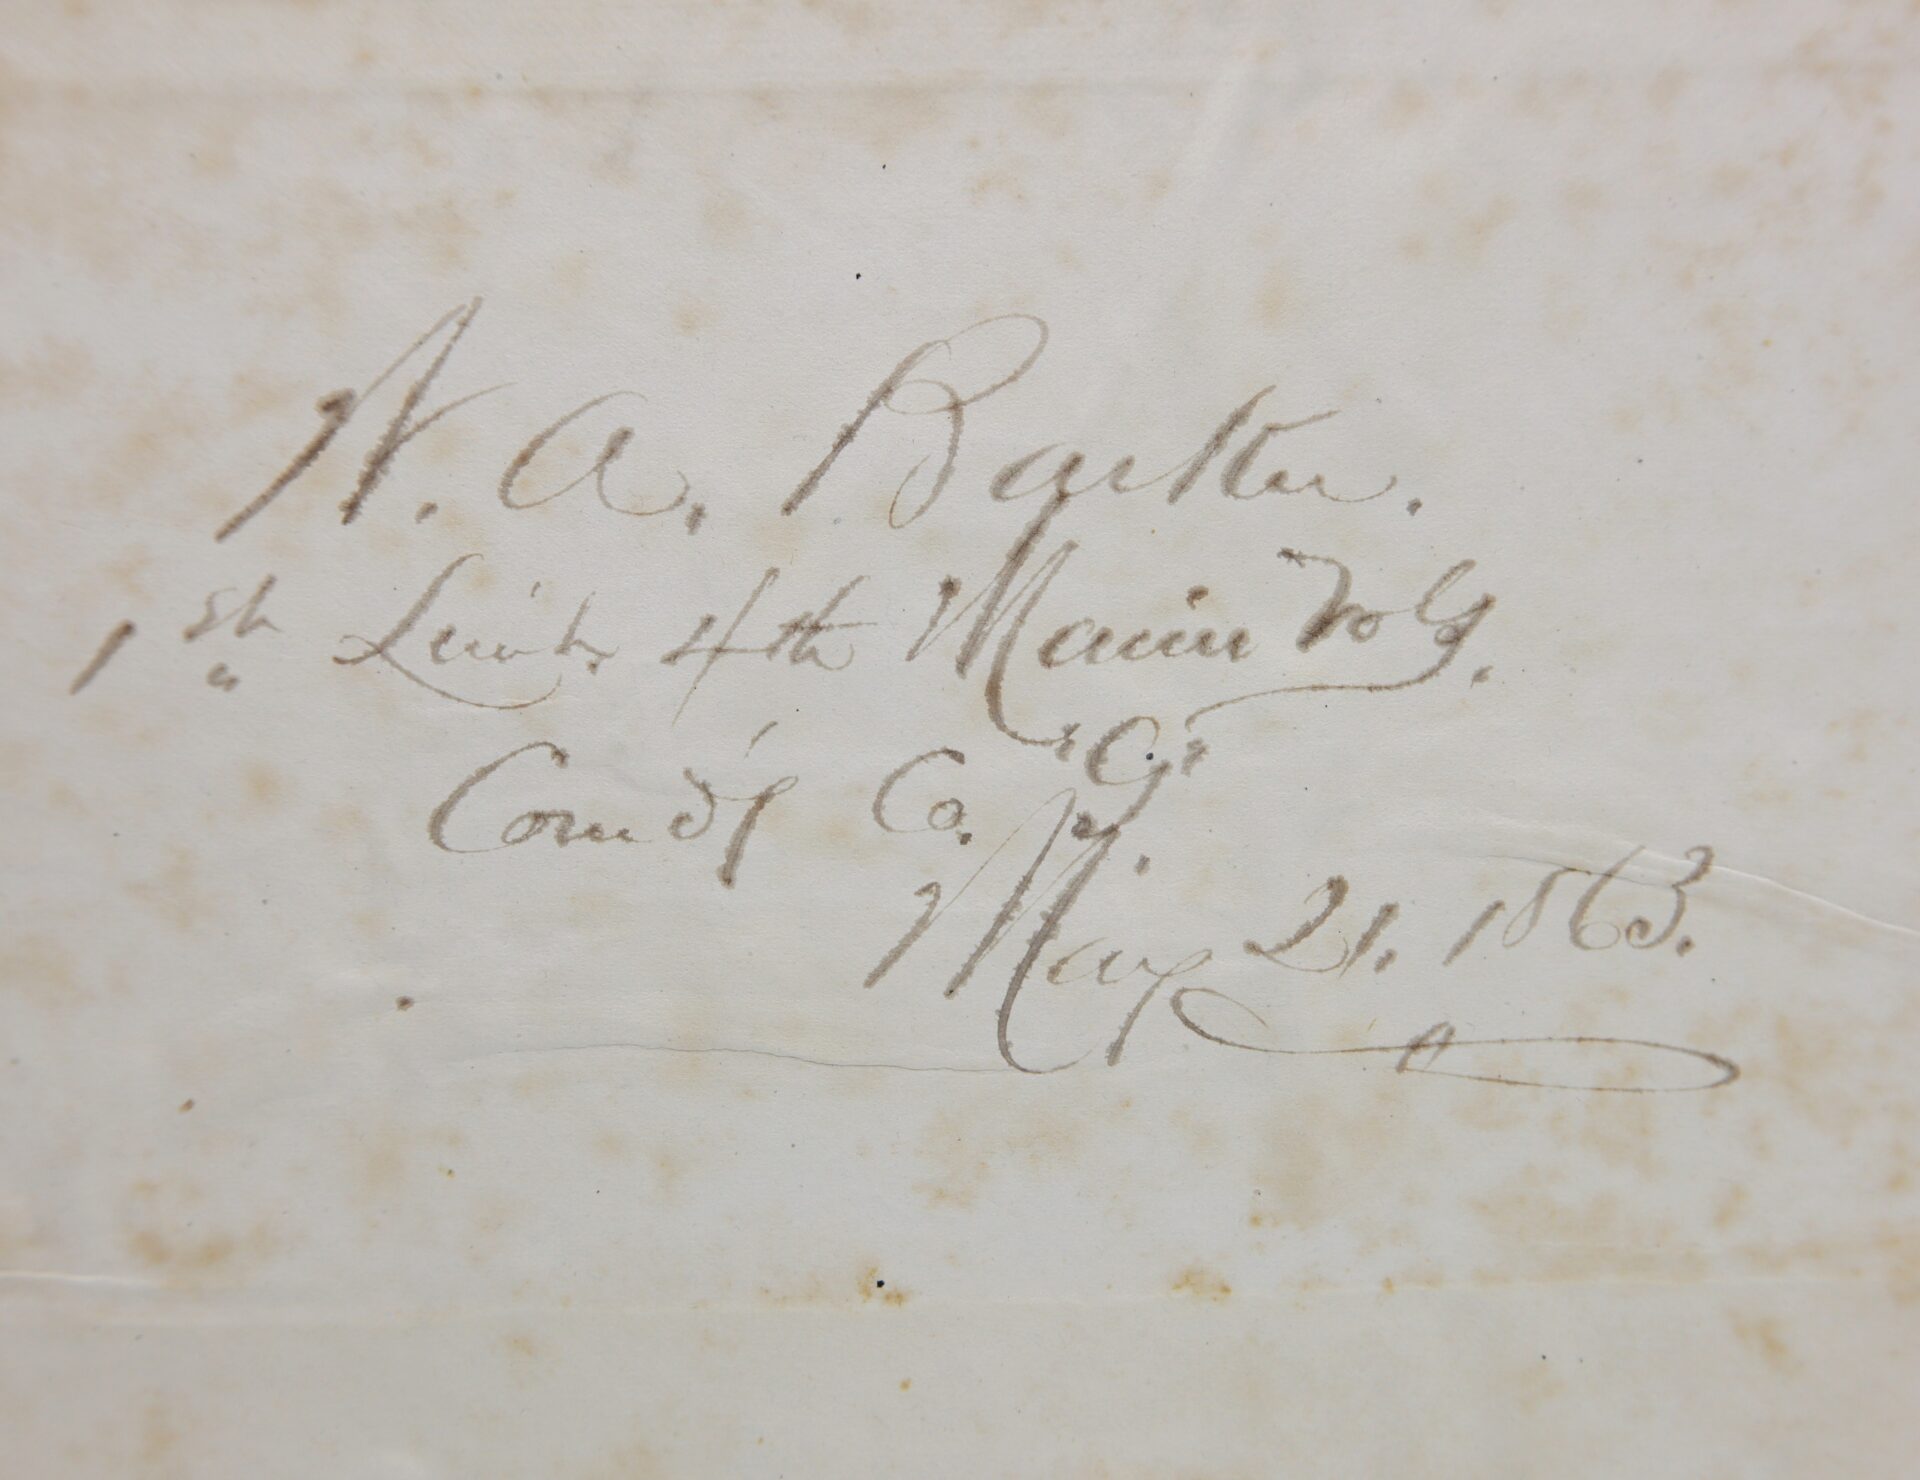 W. A. Barker.
1st Lieut. 4th Maine Vols.
Comd'g Co. "G".
May 21. 1863.